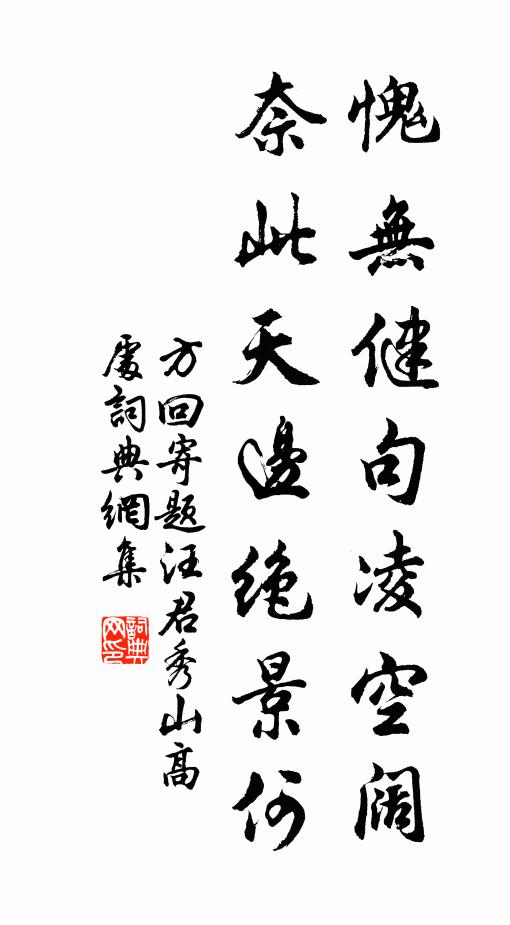 愧無健句凌空阔
奈此天邊绝景何
方回寄题汪君秀山高
處詞典網集
詞典网印